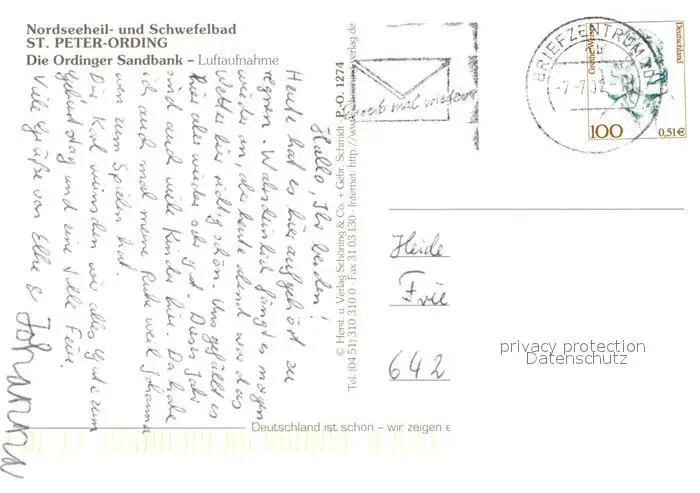 Nordseeheil- und Schwefelbad
ST. PETER-ORDING
Die Ordinger Sandbank – Luftaufnahme
Hallo, Ihr beiden!
Heute hat es hier aufgehört zu
regnen. Wahrscheinlich fängt es morgen
wieder an, aber heute abend war das
Wetter hier richtig schön. Uns gefällt es
hier aber wieder sehr gut. Dieses Jahr
sind auch viele Kinder hier. Da habe
ich auch mal meine Ruhe weil Johanna
wen zum Spielen hat.
Dir, Karl wünschen wir alles Gute zum
Geburtstag und eine tolle Feier.
Viele Grüße von Elke &
Johanna
© Herst. u. Verlag Schöning & Co. + Gebr. Schmidt
Tel. (04 51) 310 310 0 · Fax 31 03 130 · Internet: http://www.schoening-verlag.de
P.-O. 1274
Schreib mal wieder
BRIEFZENTRUM 20
b
-7.-7.02
Grethe Weiser
Deutschland
100
0,51€
Heide
Frie
642
privacy protection
Datenschutz
Deutschland ist schön – wir zeigen e